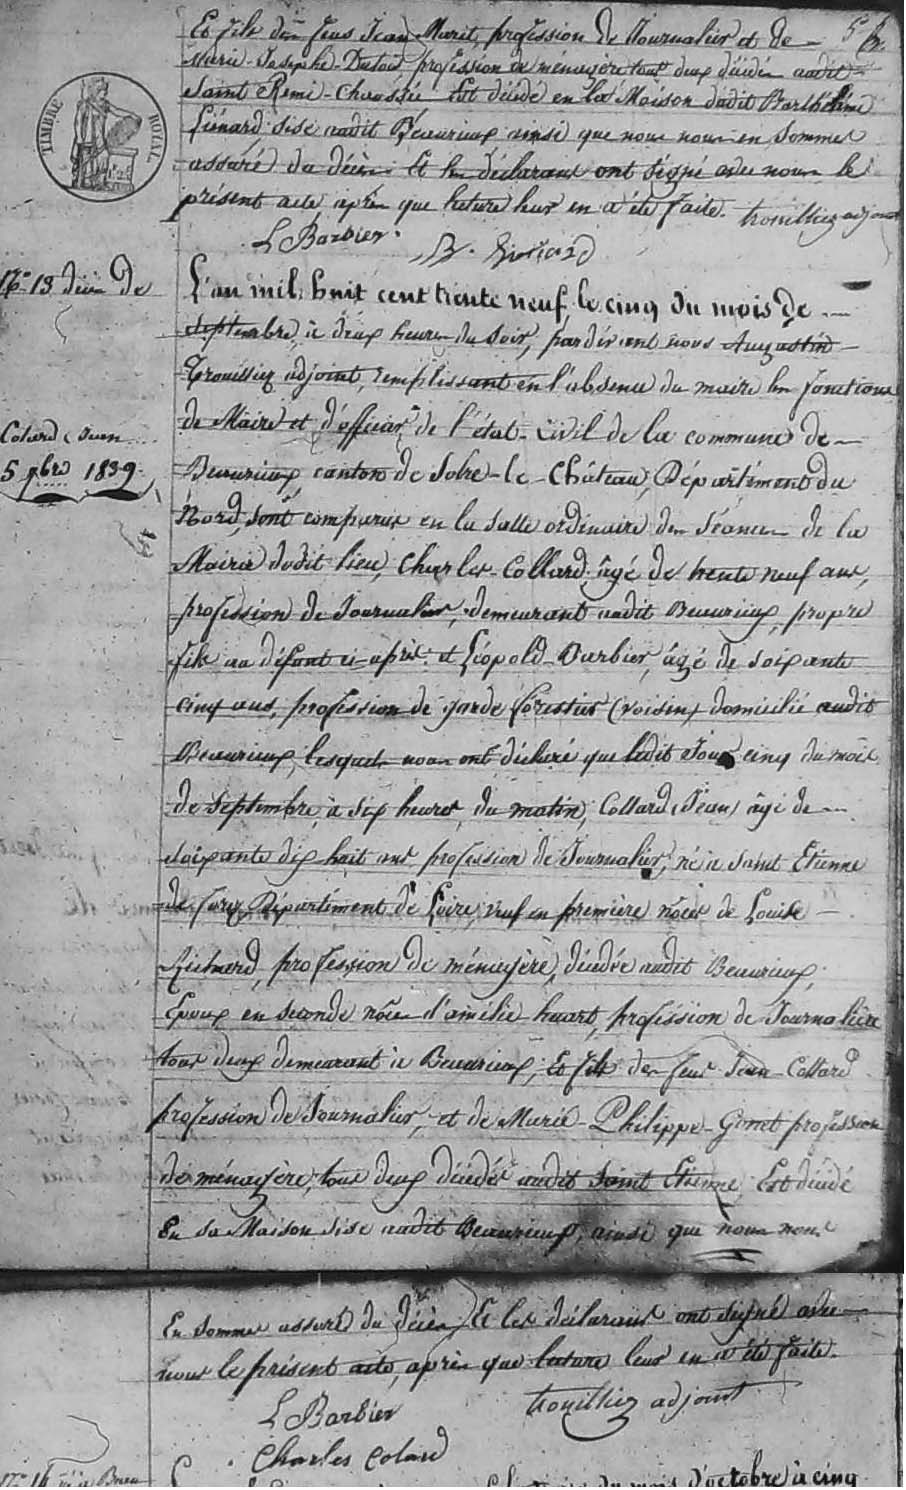 Et fils des feus Jean Murit, profession de Journalier et de
Marie-Josephe-Dutois, profession de ménagère tous deux décédés audit
Saint Remi-Chaussée Est décédé en la Maison dudit Barthélémi
siénard sise audit Beaurieux ainsi que nous nous en sommes
assuré du décès Et les déclarans ont signé avec nous le
présent acte après que lecture leur en a été faite. trouilliez adjoint
L Barbier.
TIMBRE ROYAL
N° 13 décès de
Colard Jean
5 7bre 1839
L'an mil huit cent trente neuf, le cinq du mois de
septembre, à deux heures du soir, pardevant nous Augustin
Trouilliez adjoint, remplissant en l'absence du maire les fonctions
de Maire et d'officier de l'état-civil de la commune de
Beaurieux canton de Solre-le-Château, Département du
Nord, sont comparus en la salle ordinaire des séances de la
Mairie dudit lieu, Charles-Collard, âgé de trente neuf ans,
profession de Journalier, demeurant audit Beaurieux, propre
fils au défunt ci-après: et Léopold-Barbier, âgé de soixante
cinq ans, profession de garde forestier (voisin) domicilié audit
Beaurieux, lesquels nous ont déclaré que ledit Jour cinq du mois
de septembre, à six heures du matin, Collard (Jean) âgé de
soixante dix huit ans profession de Journalier, né à Saint Etienne
de forez, Département de Loire, veuf en première noces de Louise
Richard, profession de ménagère, décédée audit Beaurieux,
Epoux en seconde noces d'amélie huart, profession de Journalière
tous deux demeurant à Beaurieux, Et fils des feus Jean-Collard
profession de Journalier, et de Marie-Philippe-Gonet profession
de ménagère, tous deux décédés audit Saint Etienne, Est décédé
En sa Maison sise audit Beaurieux, ainsi que nous nous
En sommes assuré du décès Et les déclarans ont signé avec
nous le présent acte, après que lecture leur en a été faite.
L Barbier trouilliez adjoint
Charles Colard
du mois d'octobre à cinq